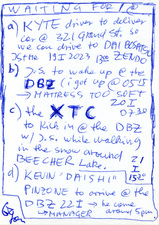 WAITING FOR / @
a) KYTE driver to deliver
car @ 321 Grand St. so
we can drive to DAI BOSATSU
19 I 2023 ZENDO
b) J.S. to wake up @ the
DBZ (I get up @ 0515)
→ MATTRESS TOO SOFT
20 I
c) the XTC 0730
to kick in @ the DBZ
w/ J.S. while walking
in the snow around
BEECHER Lake. 21
I
d) KEVIN "DAISHI" 1500
PINZONE to arrive @ the
DBZ 22 I → he came
→ MANAGER around 5pm.